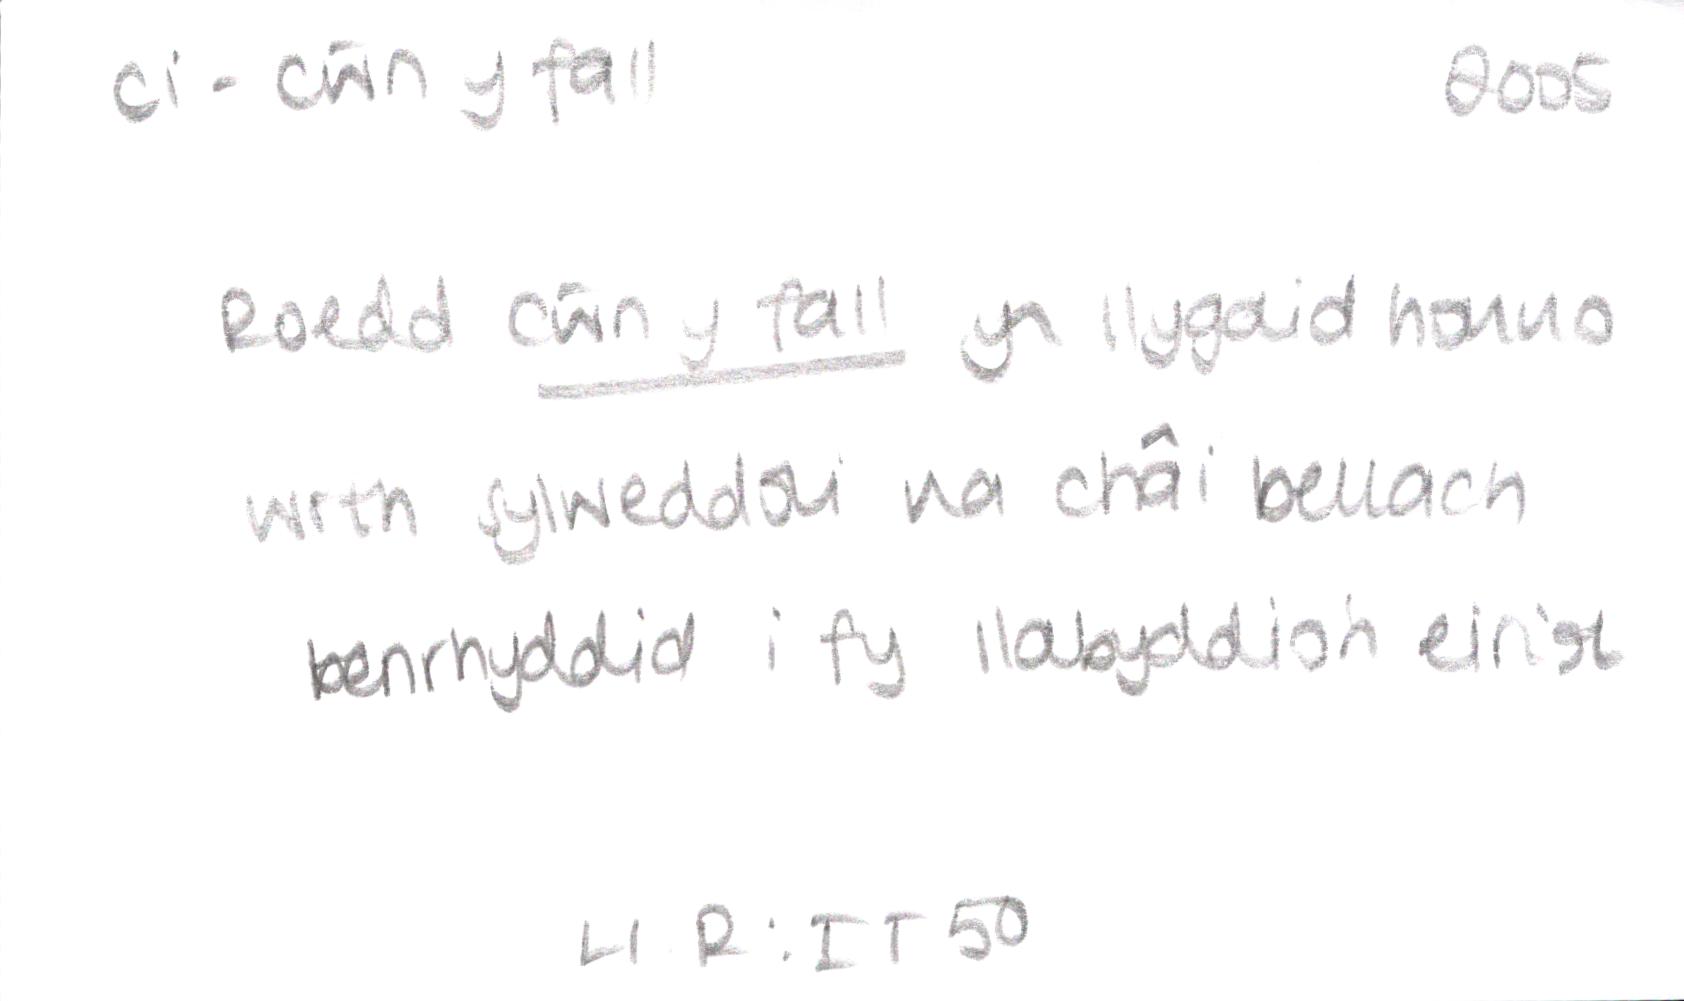 ci - cŵn y fall 2005
Roedd cŵn y fall yn llygaid honno
wrth sylweddoli na châi bellach
benrhyddid i fy llabyddioh
Ll R : IT 50